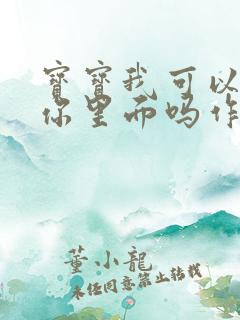 寶寶我可以
你里面吗作
董小龍
未经同意禁止转载